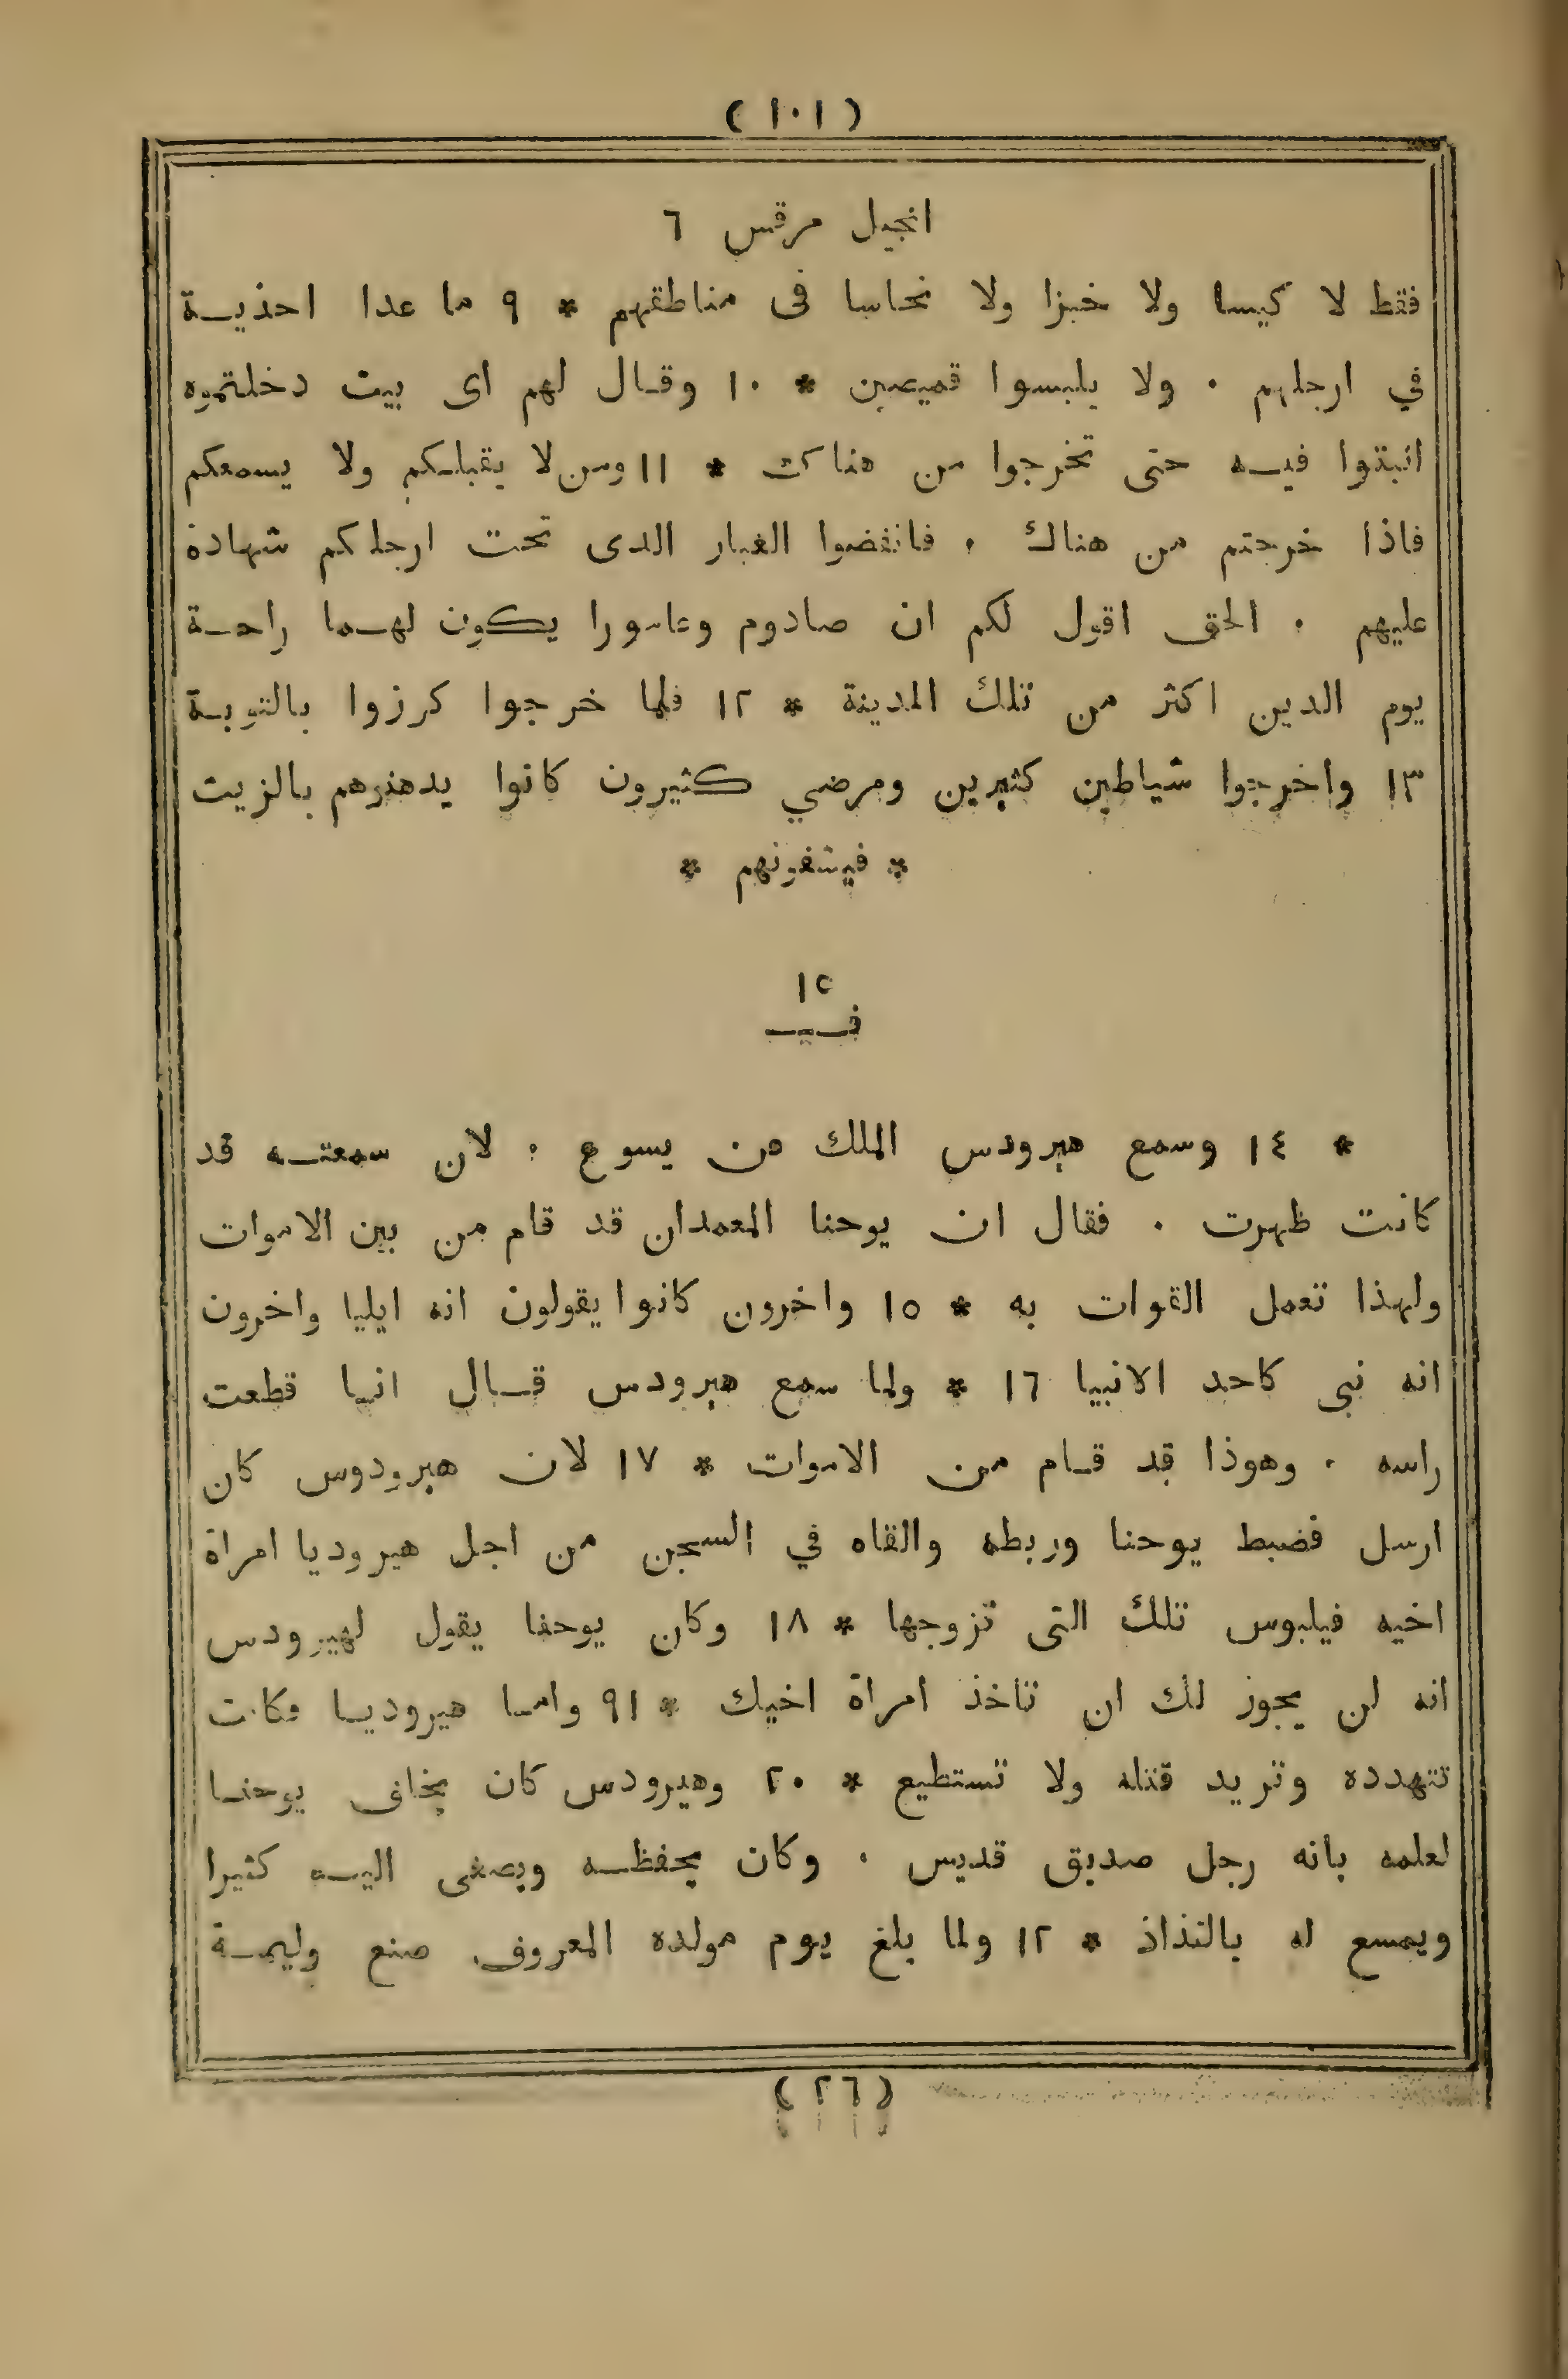 ( ١٠١ )
انجيل مرقس ٦
فقط لا كيسا ولا خبزا ولا نحاسا فى مناطقهم * ٩ ما عدا احذيـــة
في ارجلهم . ولا يلبسوا قميصين * ١٠ وقــال لهم اى بيت دخلتموه
اثبتوا فيــه حتى تخرجوا من هناك * ١١ ومن لا يقبلـكم ولا يسمعكم
فاذا خرجتم من هناك . فانفضوا الغبار الدى تحت ارجلكم شهادة
عليهم . الحق اقول لكم ان صادوم وعامورا يكون لهــما راحــة
يوم الدين اكثر من تلك المدينة * ١٢ فلما خرجوا كرزوا بالتوبـة
١٣ واخرجوا شياطين كثيرين ومرضي كثيرون كانوا يدهنوهم بالزيت
* فيشفونهم *
١٢
فـيـــ
* ١٤ وسمع هيرودس الملك من يسوع . لان سمعتــه قد
كانت ظهرت . فقال ان يوحنا المعمدان قد قام من بين الاموات
ولهذا تعمل القوات به * ١٥ واخرون كانوا يقولون انه ايليا واخرون
انه نبى كاحد الانبيا ١٦ * ولما سمع هيرودس قــال انــا قطعت
راسه . وهوذا قد قــام من الاموات * ١٧ لان هيرودوس كان
ارسل فضبط يوحنا وربطه والقاه في السجن من اجل هيروديا امراة
اخيه فيلبوس تلك التى تزوجها * ١٨ وكان يوحنا يقول لهيرودس
انه لن يجوز لك ان تاخذ امراة اخيك * ٩١ وامــا هيروديــا فكانت
تتهدده وتريد قتله ولا تستطيع * ٢٠ وهيرودس كان يخاف يوحنــا
لعلمه بانه رجل صديق قديس . وكان يحفظــه ويصغى اليــه كثيرا
ويمسع له بالتذاذ * ١٢ ولما بلغ يوم مولده المعروف. صنع وليمــة
( ٢٦ )